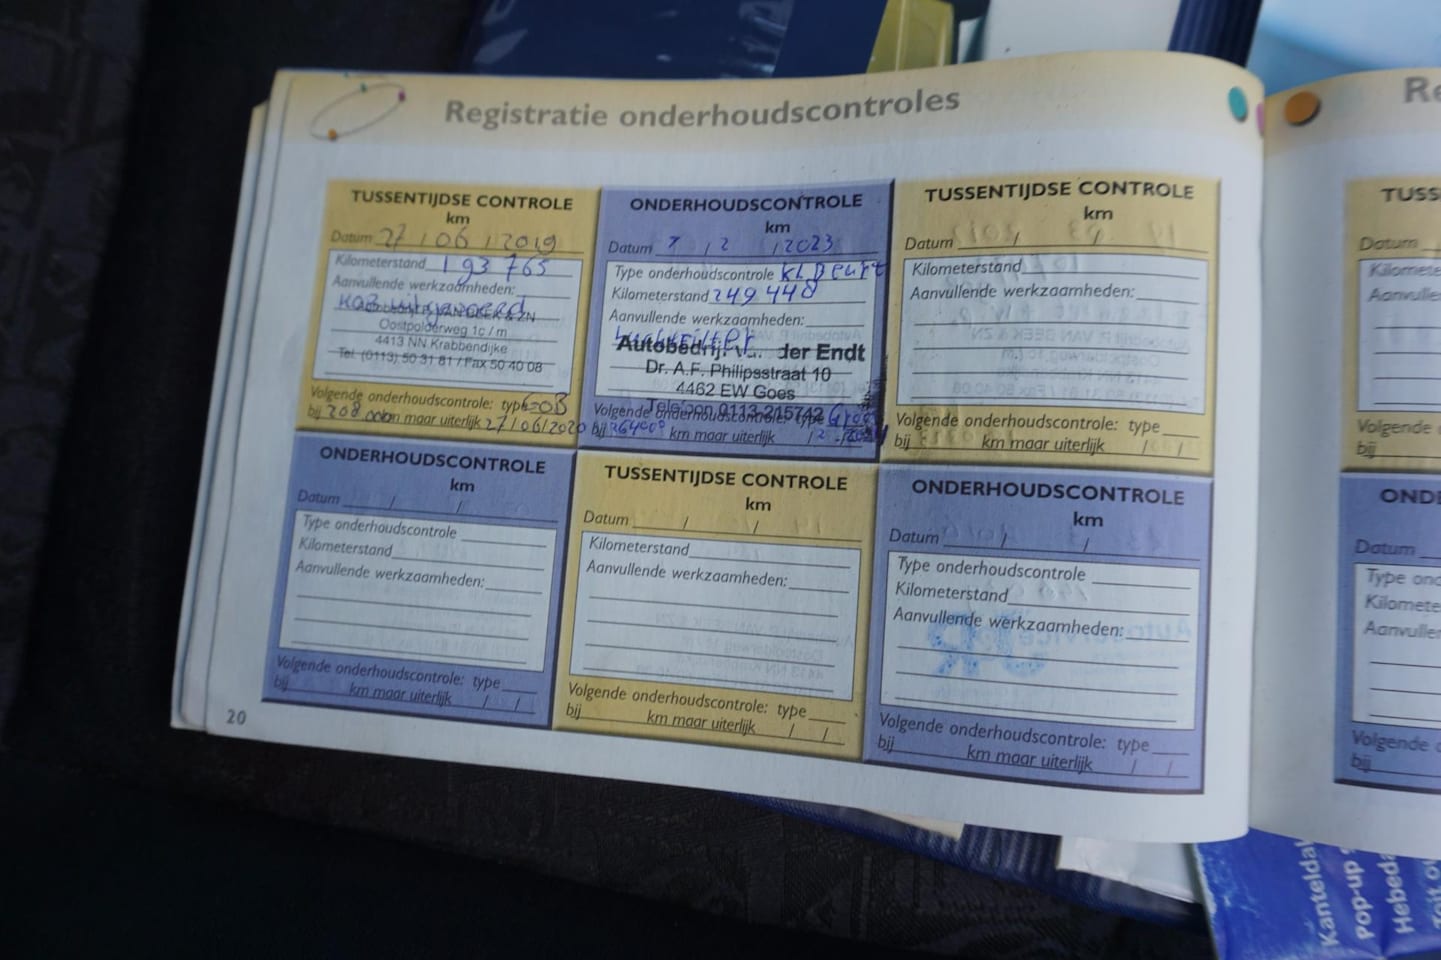 Registratie onderhoudscontroles
TUSSENTIJDSE CONTROLE
km
Datum 27 / 06 / 2019
Kilometerstand 193 765
Aanvullende werkzaamheden:
KOB uitgevoerd
VAN BEEK & ZN
Oostpolderweg 1c / m
4413 NN Krabbendijke
Tel. (0113) 50 31 81 / Fax 50 40 08
Volgende onderhoudscontrole: type GOB
bij 208.000 km maar uiterlijk 27/06/2020
ONDERHOUDSCONTROLE
km
Datum 7 / 2 / 2023
Type onderhoudscontrole kl Beurt
Kilometerstand 249 448
Aanvullende werkzaamheden:
Luchtfilter
Autobedrijf der Endt
Dr. A.F. Philipsstraat 10
4462 EW Goes
Telefoon 0113-215742
Volgende onderhoudscontrole: type
bij 264000 km maar uiterlijk / 2 -
TUSSENTIJDSE CONTROLE
km
Datum / /
Kilometerstand
Aanvullende werkzaamheden:
Volgende onderhoudscontrole: type
bij km maar uiterlijk / /
ONDERHOUDSCONTROLE
km
Datum / /
Type onderhoudscontrole
Kilometerstand
Aanvullende werkzaamheden:
Volgende onderhoudscontrole: type
bij km maar uiterlijk / /
TUSSENTIJDSE CONTROLE
km
Datum / /
Kilometerstand
Aanvullende werkzaamheden:
Volgende onderhoudscontrole: type
bij km maar uiterlijk / /
ONDERHOUDSCONTROLE
km
Datum / /
Type onderhoudscontrole
Kilometerstand
Aanvullende werkzaamheden:
Volgende onderhoudscontrole: type
bij km maar uiterlijk / /
20
Re
TUSS
Datum
Kilometerst
Aanvulle
Volgende
bij
OND
Datum
Type ond
Kilomete
Aanvulle
Volgende
bij
Kantelda
Pop-up
Hebeda